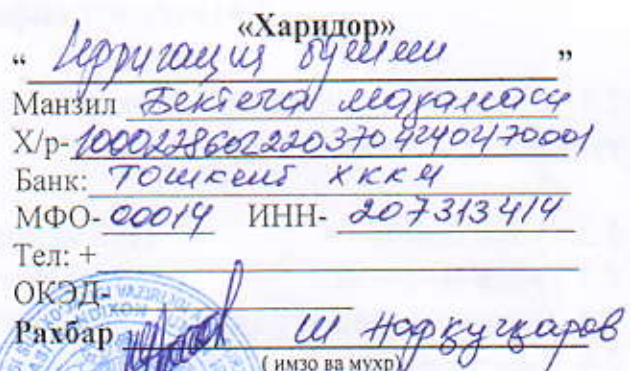 «Харидор»
“ Ирригация бўлими ”
Манзил Бектепа маҳалласи
Х/р- 10002286022203704240470001
Банк: Тошкент ХККМ
МФО- 00014 ИНН- 207313414
Тел: +
ОКЭД-
Рахбар Ш
( имзо ва мухр)